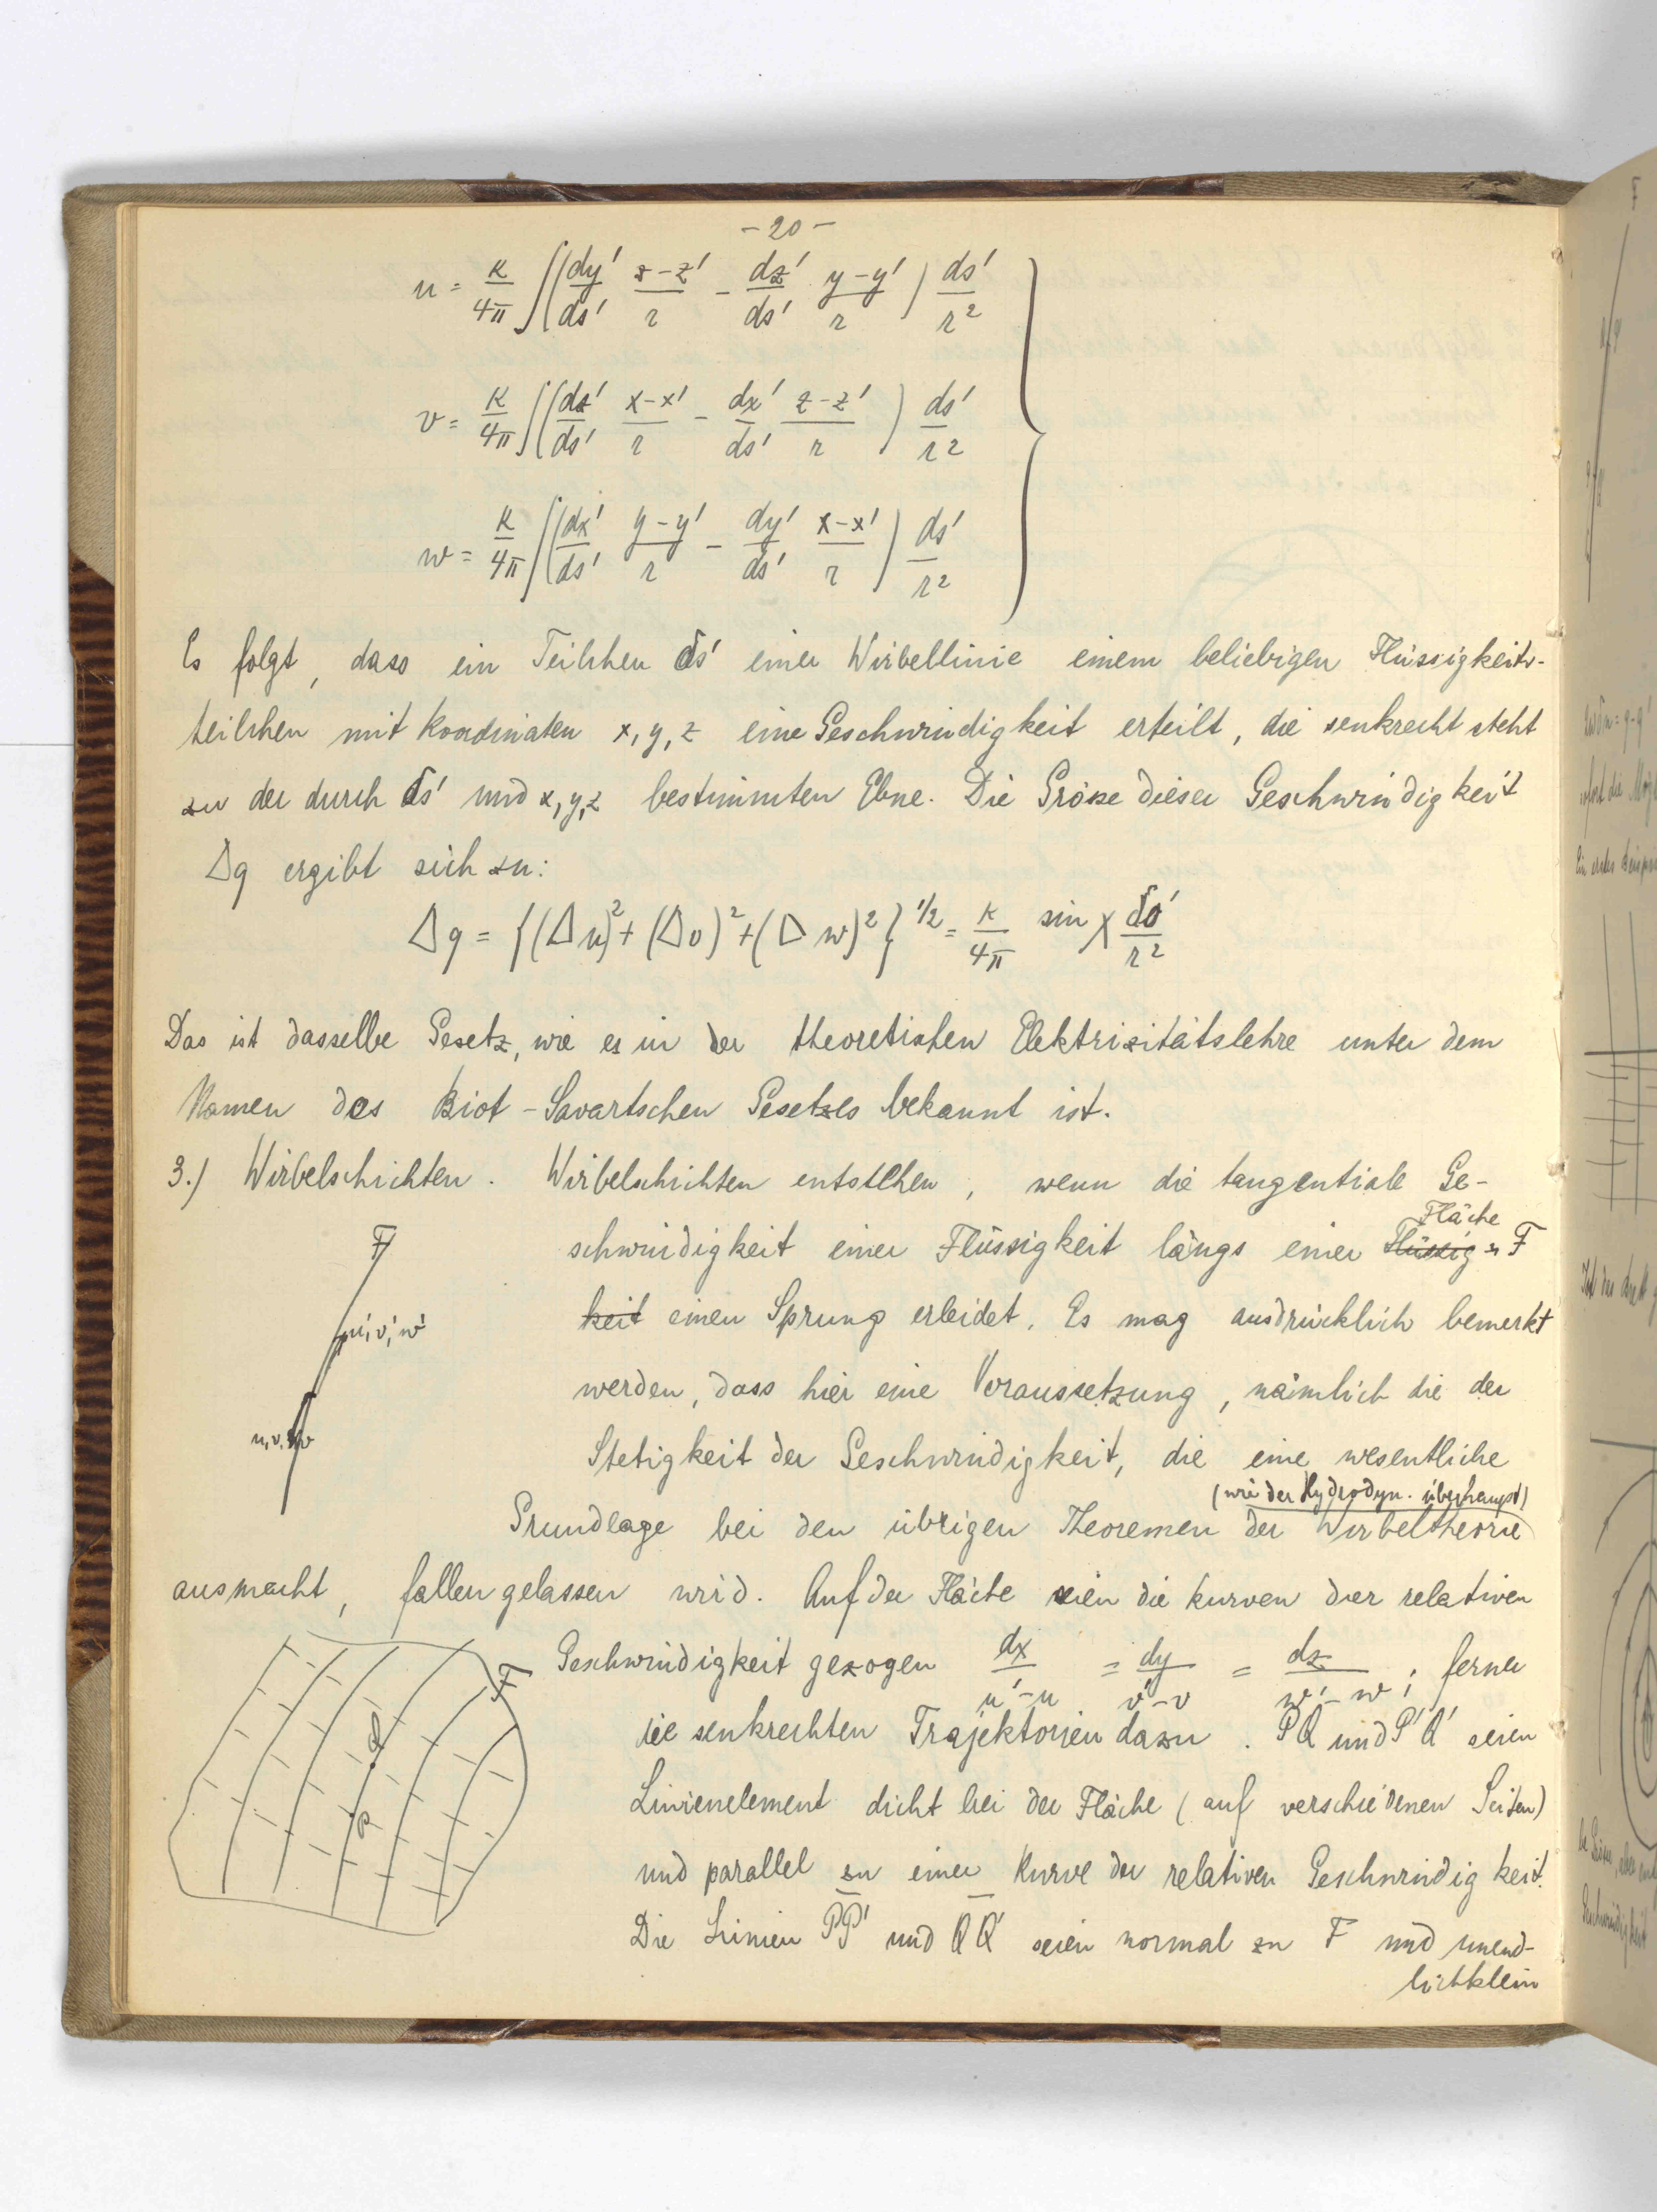 - 20 -
u = κ/4π ∫(dy'/ds' z-z'/r - dz'/ds' y-y'/r) ds'/r²
v = κ/4π ∫(dz'/ds' x-x'/r - dx'/ds' z-z'/r) ds'/r²
w = κ/4π ∫(dx'/ds' y-y'/r - dy'/ds' x-x'/r) ds'/r²
Es folgt, dass ein Teilchen δs' einer Wirbellinie einem beliebigen Flüssigkeits-
teilchen mit Koordinaten x, y, z eine Geschwindigkeit erteilt, die senkrecht steht
zu der durch δs' und x, y, z bestimmten Ebne. Die Grösse dieser Geschwindigkeit
Δq ergibt sich zu:
Δq = {(Δu)² + (Δv)² + (Δw)²}^1/2 = κ/4π sin χ δs'/r²
Das ist dasselbe Gesetz, wie es in der theoretischen Elektrizitätslehre unter dem
Namen des Biot-Savartschen Gesetzes bekannt ist.
3.) Wirbelschichten. Wirbelschichten entstehen, wenn die tangentiale Ge-
Fläche
schwindigkeit einer Flüssigkeit längs einer Flüssig- F
keit einen Sprung erleidet. Es mag ausdrücklich bemerkt
werden, dass hier eine Voraussetzung, nämlich die der
Stetigkeit der Geschwindigkeit, die eine wesentliche
(wie der Hydrodyn. überhaupt)
Grundlage bei den übrigen Theoremen der Wirbeltheorie
F
u', v', w'
u, v, w
ausmacht, fallen gelassen wird. Auf der Fläche seien die Kurven der relativen
Geschwindigkeit gezogen dx/u'-u = dy/v'-v = dz/w'-w ; ferner
die senkrechten Trajektorien dazu. PQ und P'Q' seien
Linienelement dicht bei der Fläche (auf verschiedenen Seiten)
und parallel zu einer Kurve der relativen Geschwindigkeit.
Die Linien PP' und QQ' seien normal zu F und unend-
lichklein
F
Q
P